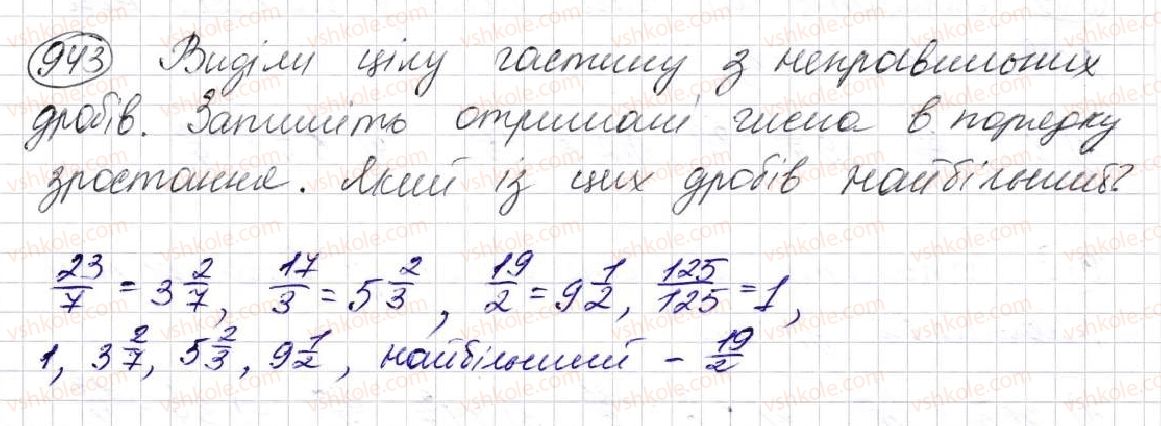 943 Виділи цілу частину з неправильних
дробів. Запишіть отримані числа в порядку
зростання. Який із цих дробів найбільший?
23/7 = 3 2/7, 17/3 = 5 2/3, 19/2 = 9 1/2, 125/125 = 1,
1, 3 2/7, 5 2/3, 9 1/2, найбільший - 19/2